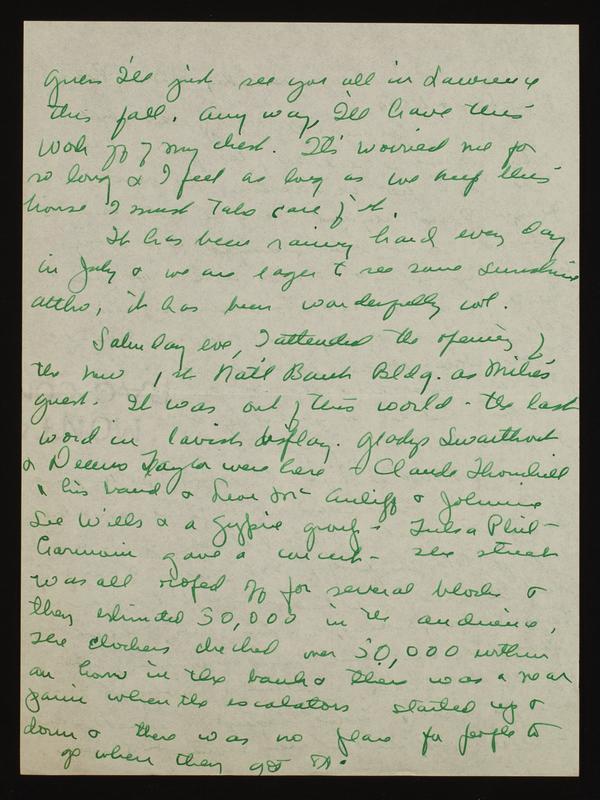 guess I'll just see you all in Lawrence
this fall. Any way, I'll have this
work off of my chest. It's worried me for
so long & I feel as long as we keep this
house I must take care of it.
It has been raining hard every day
in July & we are eager to see some sunshine
altho, it has been wonderfully cool.
Saturday eve, I attended the opening of
the new 1st Nat'l Bank Bldg. as Milie's
guest. It was out of this world - the last
word in lavish display. Gladys Swarthout
& Deems Taylor were here & Claude Thornhill
& his band & Leon McAuliff & Johnnie
Lee Wills & a Gypsie group - Tulsa Phil-
harmonic gave a concert - The street
was all roped off for several blocks &
they estimated 30,000 in the audience,
The clockers checked over 30,000 within
an hour in the bank & there was a near
panic when the escalators started up &
down & there was no place for people to
go when they got